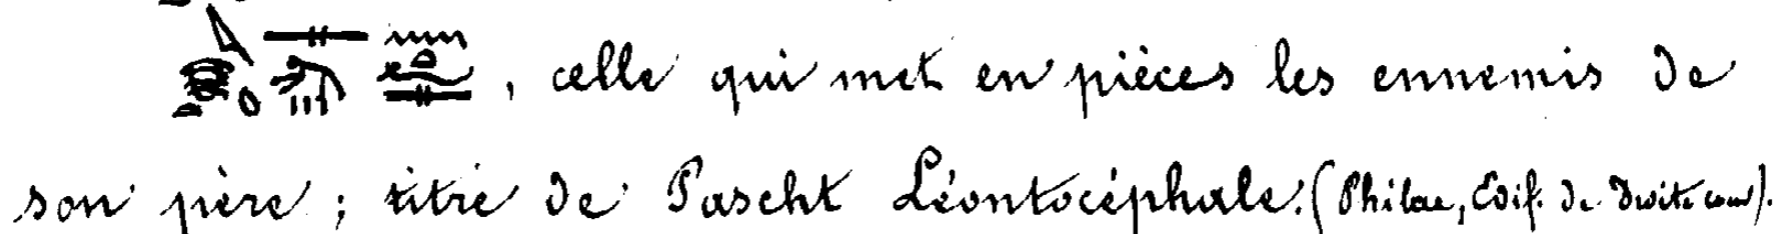 , celle qui met en pièces les ennemis de
son père ; titre de Pascht Léontocéphale. (Philae, Edif. de droite cour).